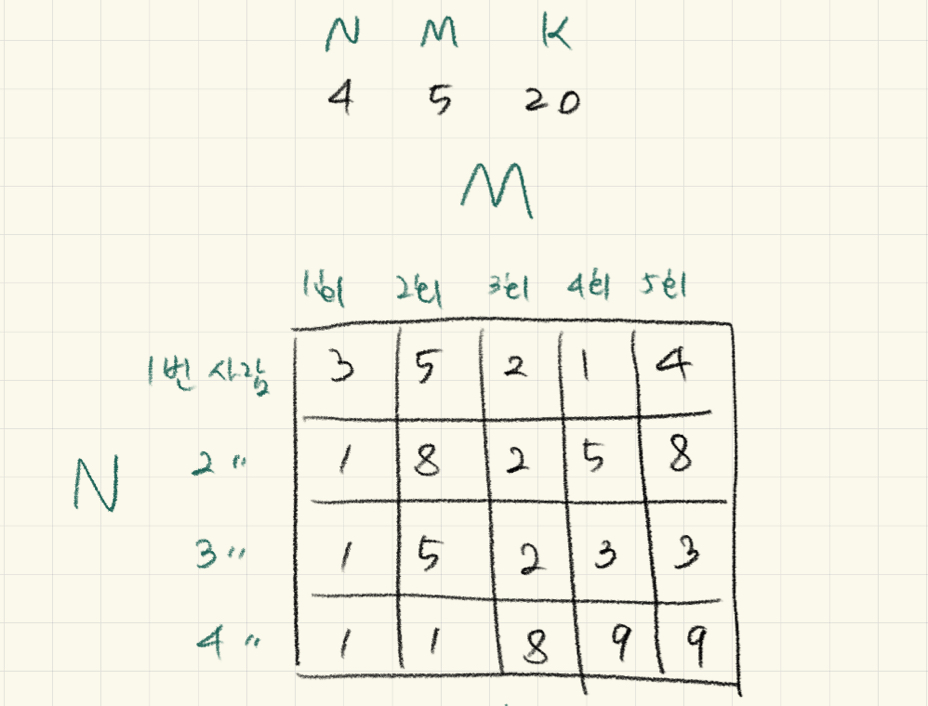 N M K
4 5 20
M
1넴 2넴 3넴 4넴 5넴
1번 사람 3 5 2 1 4
N
2 〃 1 8 2 5 8
3 〃 1 5 2 3 3
4 〃 1 1 8 9 9